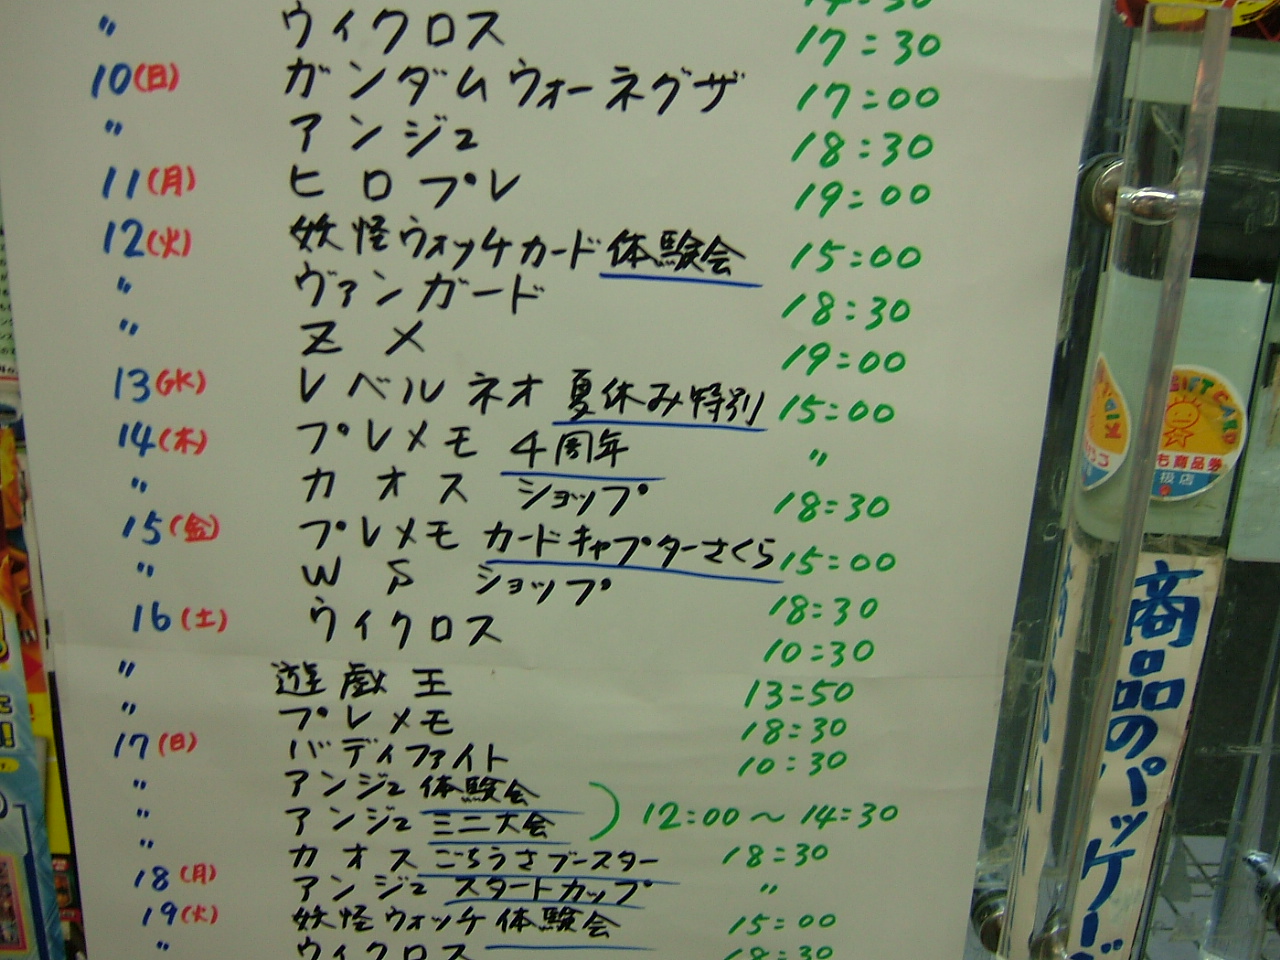 〃 ウィクロス 17:30
10(日) ガンダムウォーネグザ 17:00
〃 アンジュ 18:30
11(月) ヒロプレ 19:00
12(火) 妖怪ウォッチカード体験会 15:00
〃 ヴァンガード 18:30
〃 Z メ 19:00
13(水) レベルネオ 夏休み特別 15:00
14(木) プレメモ 4周年 〃
〃 カオス ショップ 18:30
15(金) プレメモ カードキャプターさくら 15:00
〃 WS ショップ 18:30
16(土) ウィクロス 10:30
〃 遊戯王 13:50
〃 プレメモ 18:30
17(日) バディファイト 10:30
〃 アンジュ 体験会
〃 アンジュ ミニ大会 12:00〜14:30
〃 カオス ごちうさブースター 18:30
18(月) アンジュ スタートカップ 〃
19(火) 妖怪ウォッチ 体験会 15:00
〃 ウィクロス 18:30
GIFT CARD
も商品券
扱店
商品のパッケージ